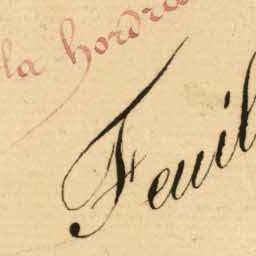 la hordr
Feuil